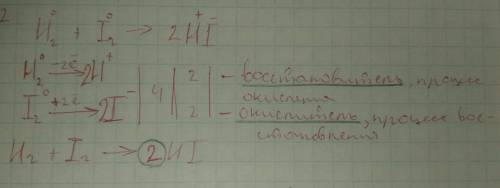 2
H₂⁰ + I₂⁰ → 2H⁺I⁻
H₂⁰ -2ē → 2H⁺ | 4 | 2 | - восстановитель, процесс окисления
I₂⁰ +2ē → 2I⁻ | | 2 | - окислитель, процесс восстановления
H₂ + I₂ → 2HI